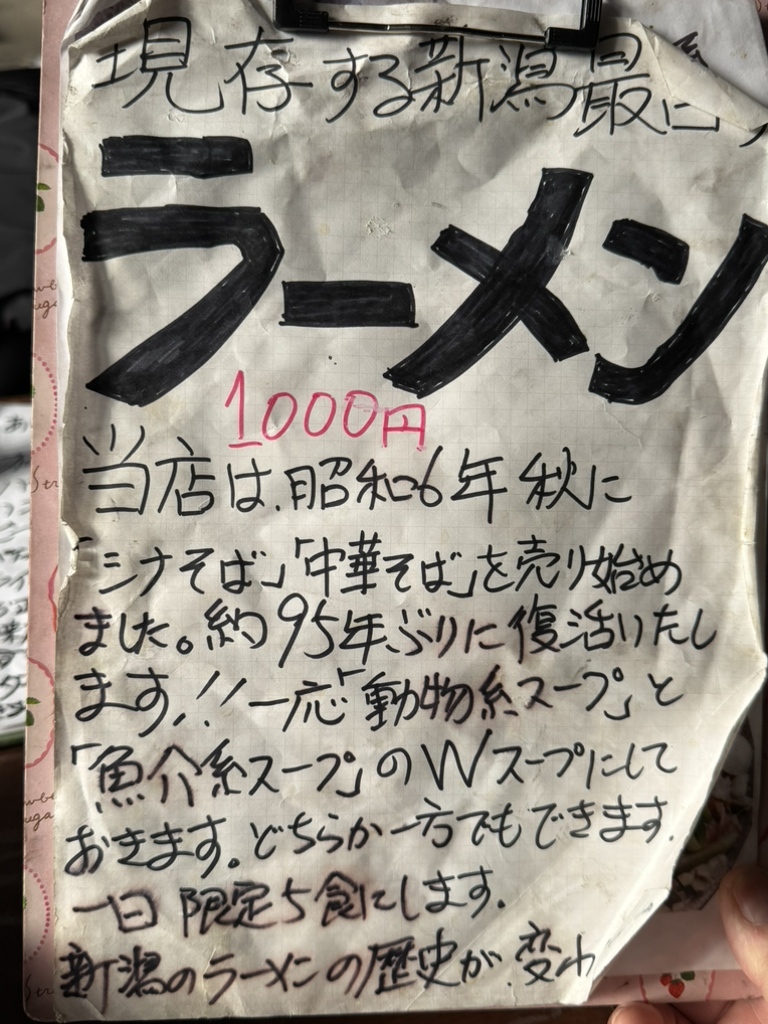 現存する新潟最
ラーメン
1000円
当店は、昭和6年秋に
「シナそば」「中華そば」を売り始め
ました。約95年ぶりに復活いたし
ます!!一応「動物系スープ」と
「魚介系スープ」のWスープにして
おきます。どちらか一方でもできます.
一日限定5食にします.
新潟のラーメンの歴史が、変わ